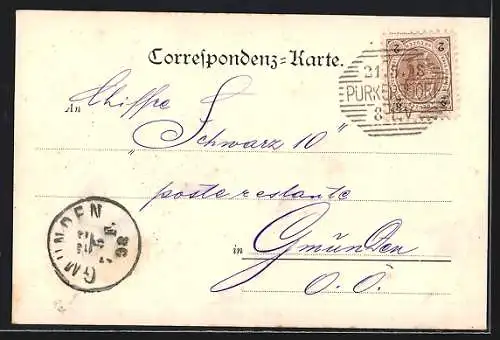 Correspondenz-Karte.
An Chiffre S
„Schwarz 10"
poste restante
in Gmünden
O. Ö.
2 2
PURKERSDORF
GMUNDEN
98